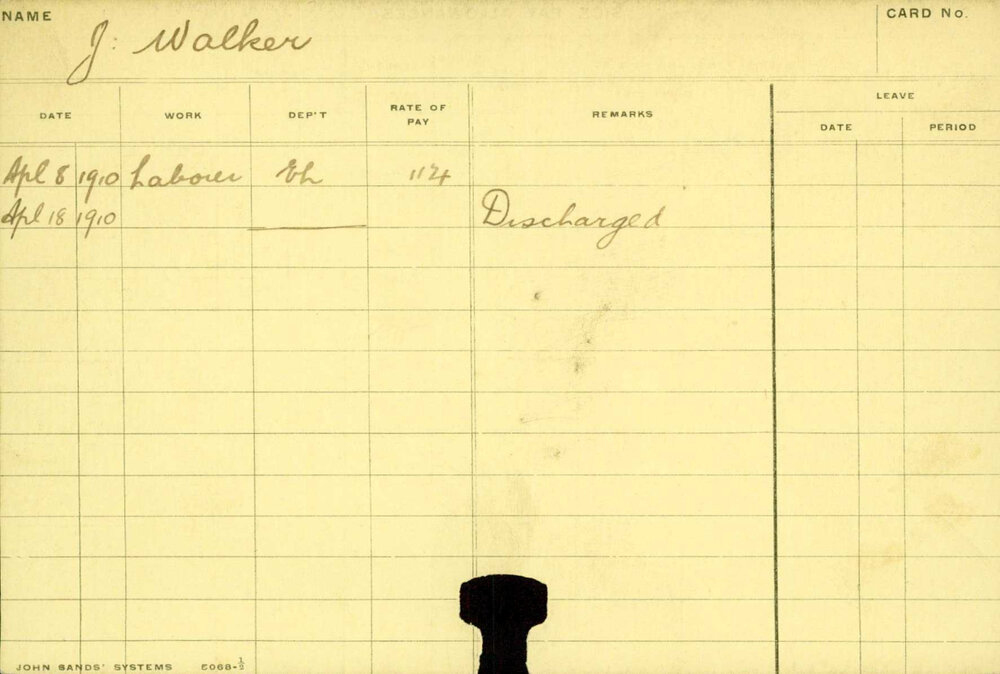 NAME J. Walker CARD No.
DATE WORK DEP'T RATE OF PAY REMARKS LEAVE
DATE PERIOD
Apl 8 1910 Laborer 11
Apl 18 1910 Discharged
JOHN SANDS' SYSTEMS 5068-½